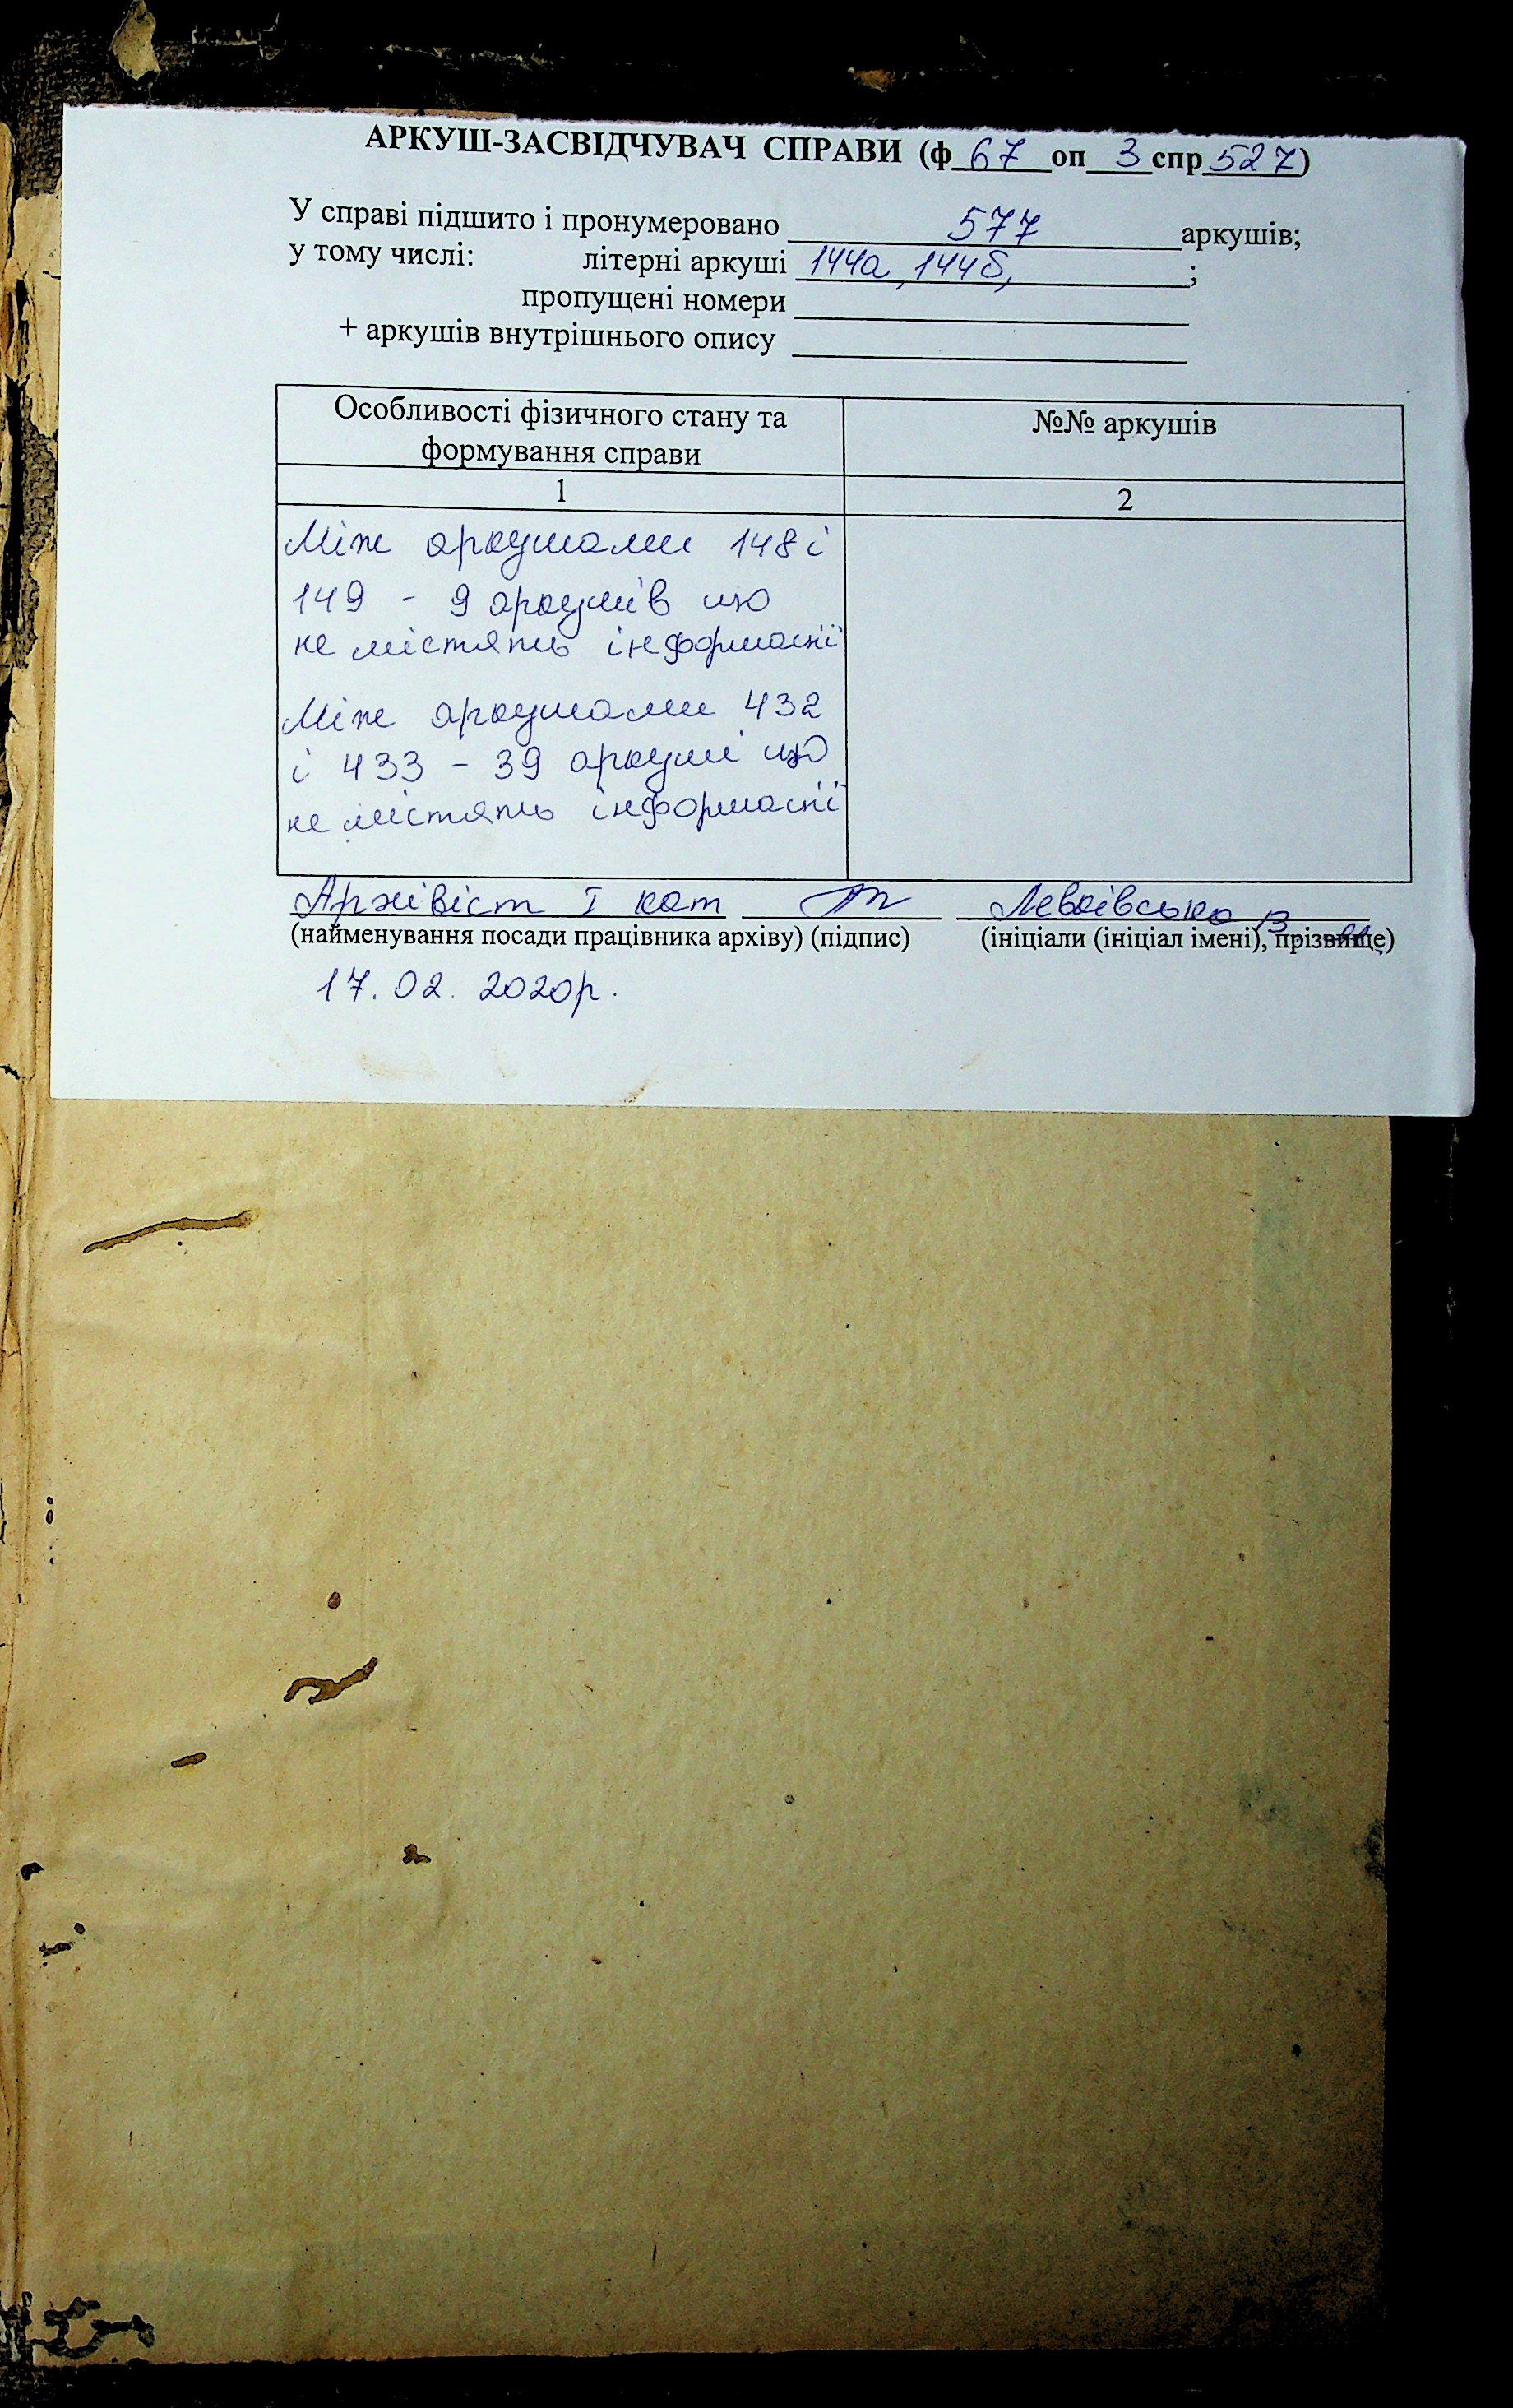 АРКУШ-ЗАСВІДЧУВАЧ СПРАВИ (ф 67 оп 3 спр 527)
У справі підшито і пронумеровано 577 аркушів;
у тому числі: літерні аркуші 144а, 144б, ;
пропущені номери
+ аркушів внутрішнього опису
Особливості фізичного стану та
формування справи
№№ аркушів
1
2
Між аркушами 148 і
149 - 9 аркушів що
не містять інформації
Між аркушами 432
і 433 - 39 аркуші що
не містять інформації
Архівіст І кат
(найменування посади працівника архіву) (підпис) (ініціали (ініціал імені), прізвище)
17.02.2020р.